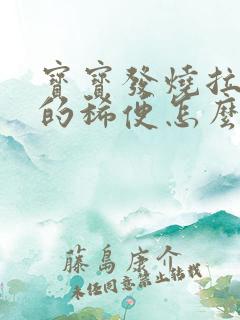 寶寶發燒拉
的稀便怎麼
藤島康介
未經同意禁止轉載